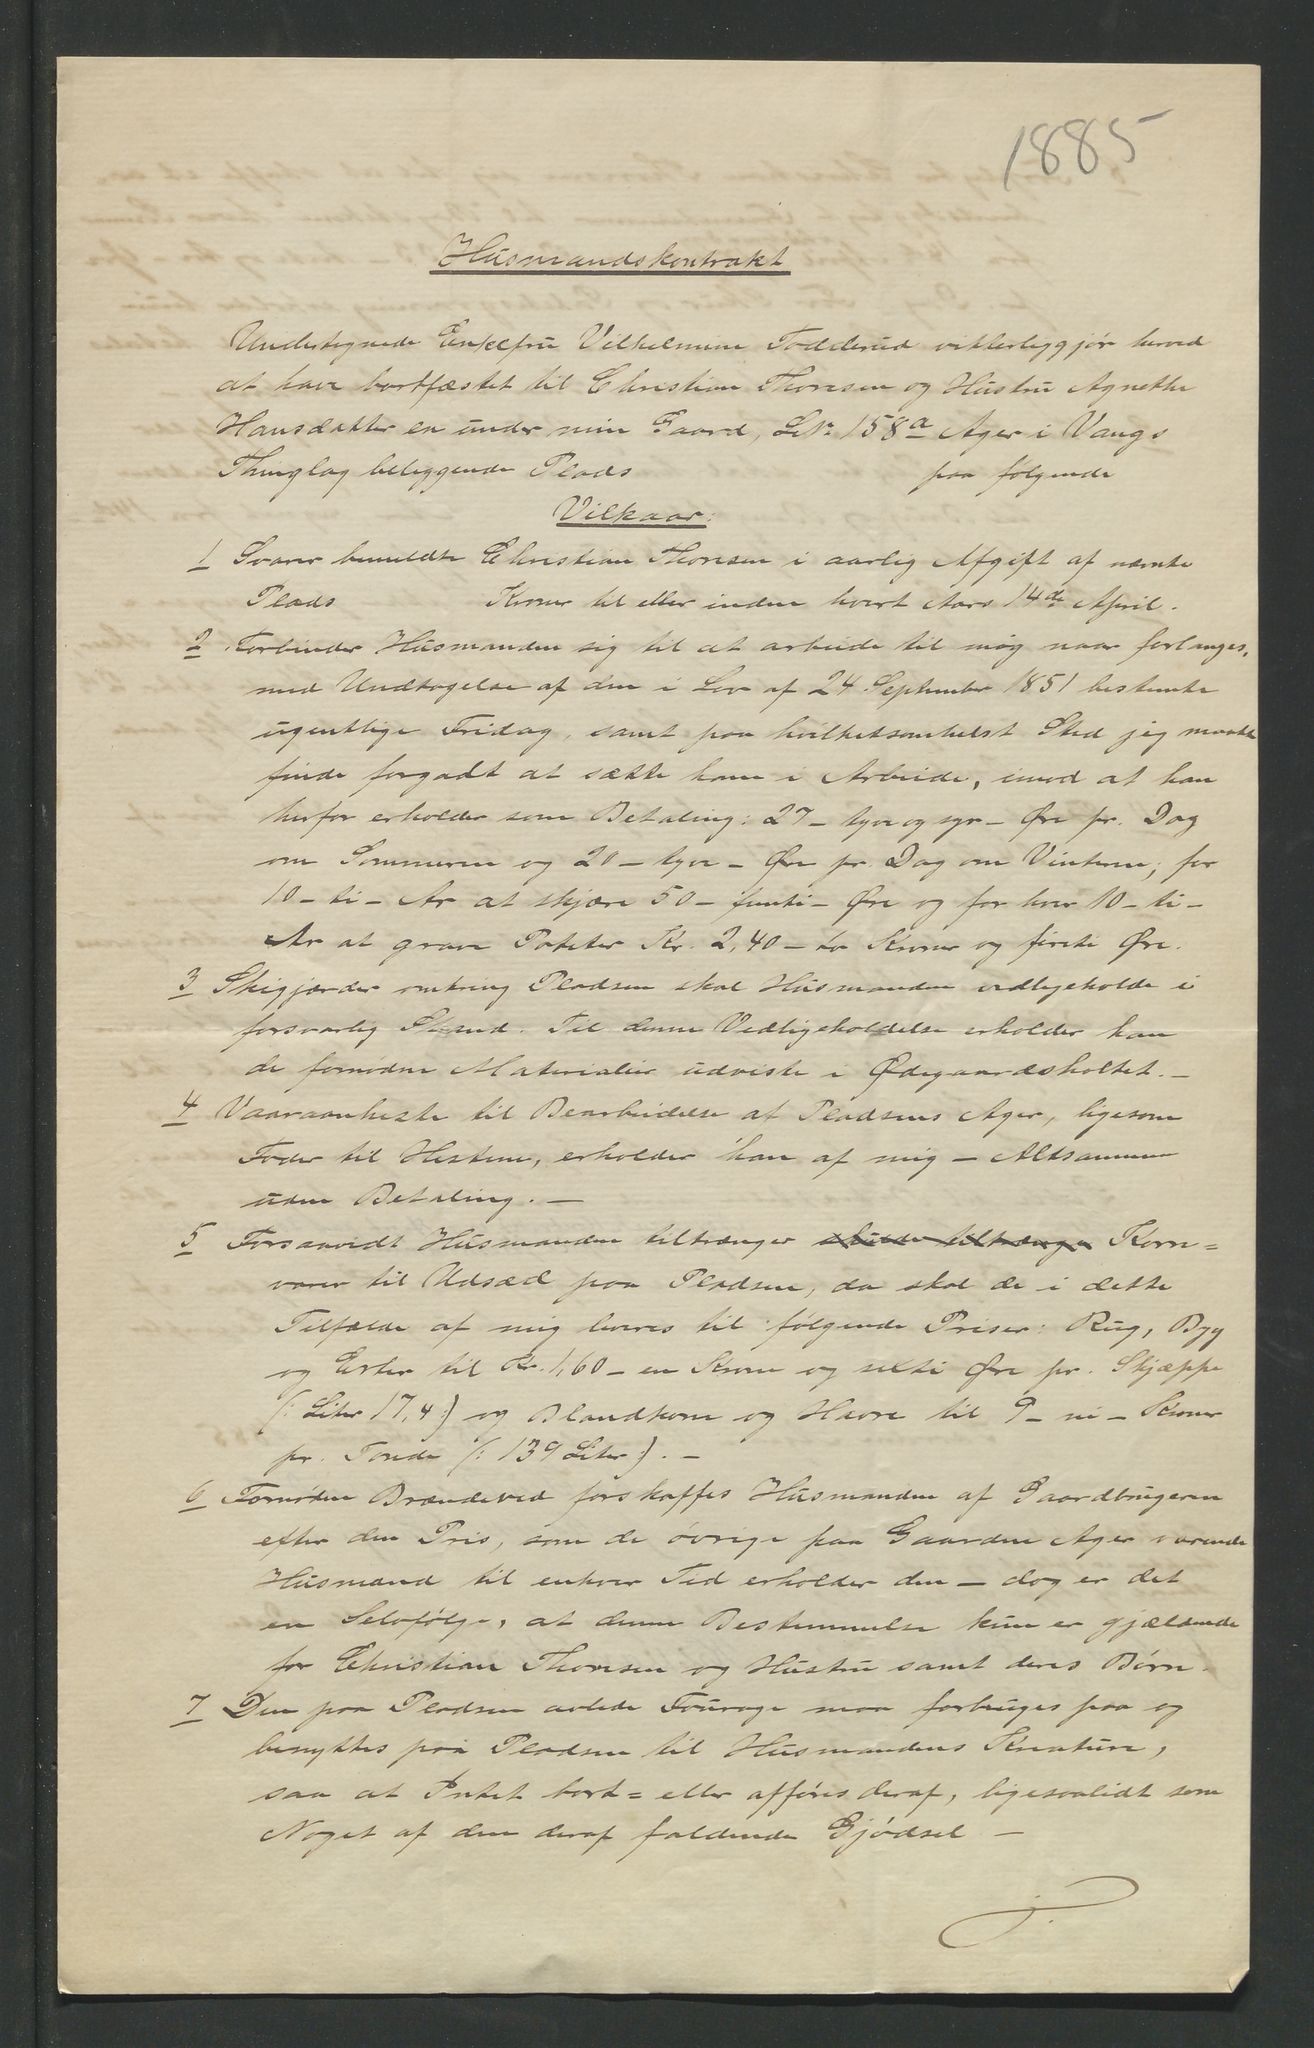 1885
Husmandskontrakt
Undertegnede Enkefru Vilhelmine Todderud vitterliggjør herved
at have bortfæstet til Christian Thoresen og Hustru Agnethe
Hansdatter en under min Gaard, Lit. 158a Ager i Vangs
Thinglag beliggende Plads paa følgende
Vilkaar:
1 Svarer bemeldte Christian Thoresen i aarlig Afgift af nævnte
Plads Kroner til eller inden hvert Aars 14de April.
2 Forbinder Husmanden sig til at arbeide til mig naar forlanges,
med Undtagelse af den i Lov af 24 September 1851 bestemte
ugentlige Fridag, samt paa hvilketsomhelst Sted jeg maatte
finde forgodt at sætte ham i Arbeide, imod at han
herfor erholder som Betaling: 27 - tyve og syv - Øre pr. Dag
om Sommeren og 20 - tyve - Øre pr. Dag om Vinteren, for
10 - ti - Ar at skjære 50 - femti - Øre og for hver 10 - ti -
Ar at grave Poteter Kr. 2,40 - to Kroner og firti Øre.
3 Skigjærder omkring Pladsen skal Husmanden vedligeholde i
forsvarlig Stand. Til denne Vedligeholdelse erholder han
de fornødne Materialier udviste i Ødegaardsholtet. -
4 Vaaraanheste til Bearbeidelse af Pladsens Ager, ligesom
Foder til Hestene, erholder han af mig - Altsammen
uden Betaling. -
5 Forsaavidt Husmanden tiltrænger skulde tiltrænge Korn=
varer til Udsæd paa Pladsen, da skal de i dette
Tilfælde af mig leveres til følgende Priser: Rug, Byg
og Erter til Kr. 1,60 - en Krone og sexti Øre pr. Skjæppe
(: Liter 17,4 :) og Blandkorn og Havre til 9 - ni - Kroner
pr. Tønde (: 139 Liter :). -
6 Fornøden Brændeved forskaffes Husmanden af Gaardbrugeren
efter den Pris, som de øvrige paa Gaarden Ager værende
Husmænd til enhver Tid erholder den - dog er det
en Selvfølge, at denne Bestemmelse kun er gjældende
for Christian Thoresen og Hustru samt deres Børn.
7 Den paa Pladsen avlede Fourage maa forbruges paa og
benyttes paa Pladsen til Husmandens Kreature,
saa at Intet bort= eller afføres deraf, ligesaalidt som
Noget af den deraf faldende Gjødsel -